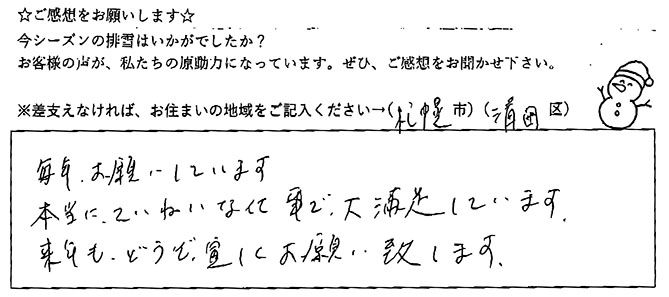 ☆ご感想をお願いします☆
今シーズンの排雪はいかがでしたか？
お客様の声が、私たちの原動力になっています。ぜひ、ご感想をお聞かせ下さい。
※差支えなければ、お住まいの地域をご記入ください→(札幌市)(清田区)
毎年、お願いしています
本当に、ていねいな仕事で、大満足しています。
来年も、どうぞ、宜しくお願い致します。